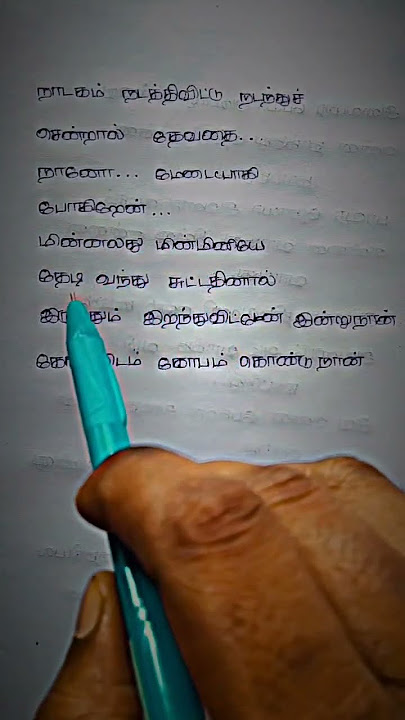 நாடகம் நடத்திவிட்டு நடந்துச்
சென்றால் தேவதை...
நானோ... மேடையாகி
போகிறேன்...
மின்னலது மின்மினியே
தேடி வந்து சுட்டதினால்
இறந்துவிட்டேன் இன்று நான்
கோபம் கொண்டு நான்